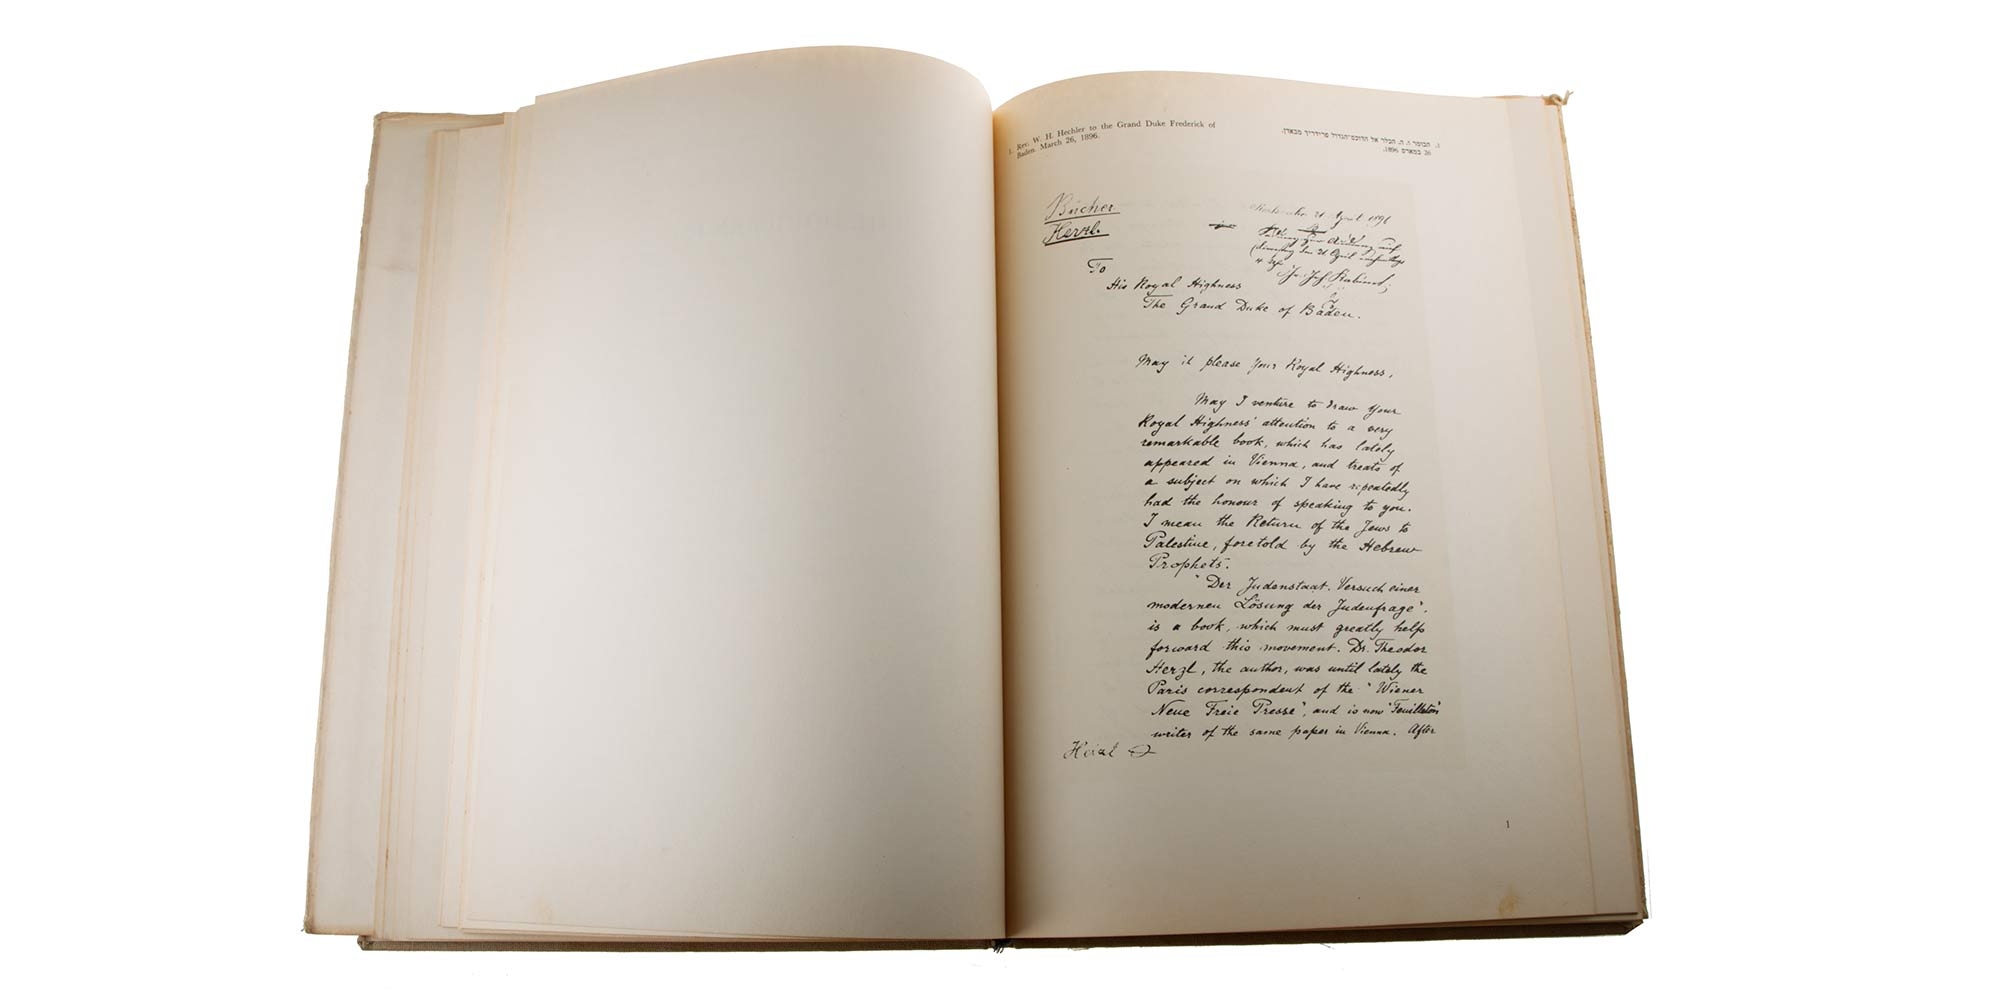 1. Rev. W. H. Hechler to the Grand Duke Frederick of
Baden. March 26, 1896.
1. הכומר ו. ה. הכלר אל הדוכס־הגדול פרידריך מבאדן.
26 במארס 1896.
Bücher
Herzl.
21 April 1896
den 21 April
To
His Royal Highness
The Grand Duke of Baden.
May it please Your Royal Highness,
May I venture to draw Your
Royal Highness' attention to a very
remarkable book, which has lately
appeared in Vienna, and treats of
a subject on which I have repeatedly
had the honour of speaking to you.
I mean the Return of the Jews to
Palestine, foretold by the Hebrew
Prophets.
"Der Judenstaat. Versuch einer
modernen Lösung der Judenfrage".
is a book, which must greatly help
forward this movement. Dr. Theodor
Herzl, the author, was until lately the
Paris correspondent of the "Wiener
Neue Freie Presse", and is now "Feuilleton"
writer of the same paper in Vienna. After
Herzl
1